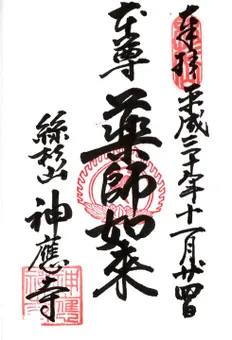 奉拝 平成三十年十一月廿四日
本尊
薬師如来
絲杉山
神應寺